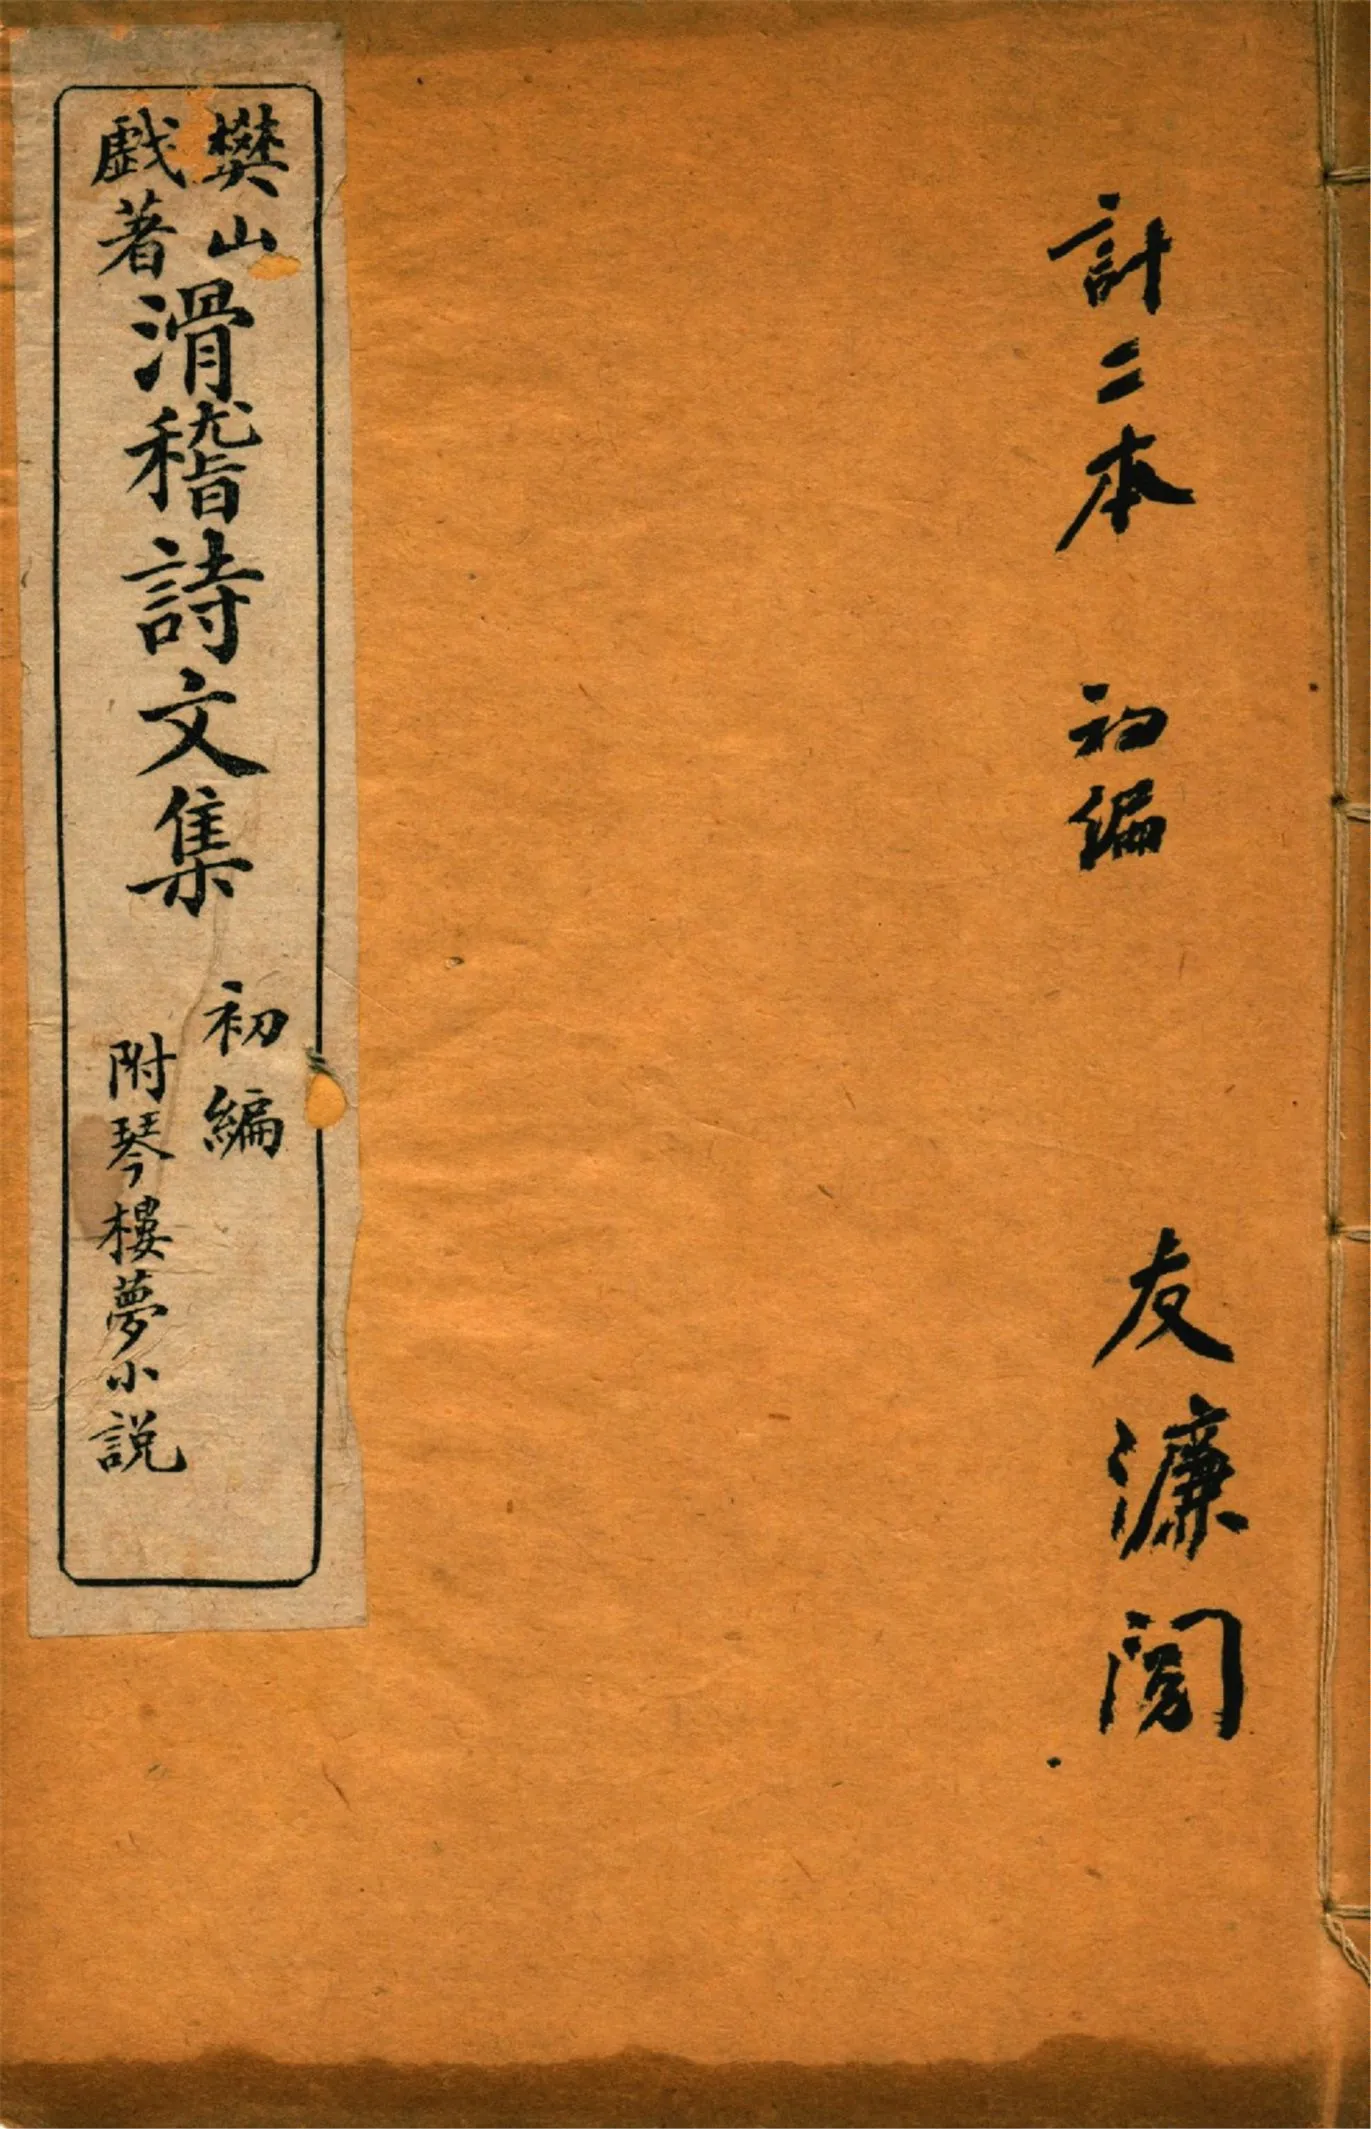 計二本 初編
友濂閱
樊山
戲著
滑稽詩文集
初編
附琴樓夢小説